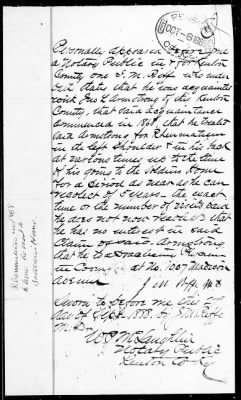 PENSION
OCT 8 88
Personally appeared before me
a Notary Public in & for Kenton
County one J. M. Roff who under
oath states that he was acquainted
with Jas L Armstrong of this Kenton
County, that said acquaintance
Commenced in 1868 that he treated
said Armstrong for Rheumatism
in the left shoulder & in his back
at various times up to the time
of his going to the Soldiers Home
for a period as near as he can
recollect of 5 years the exact
time or the number of visits said
he does not now recollect that
he has no interest in said
Claim of said Armstrong
that he is a Practicing Physician
in Covington at No. 1007 Madison
Avenue
J M Roff M D
Sworn to before me this 27
day of Sept. 1888. by J M Roff
M. D.
W S McLaughlin
Notary Public
Kenton Co Ky
Rheumatism in 1868
to time he went to
Soldiers Home